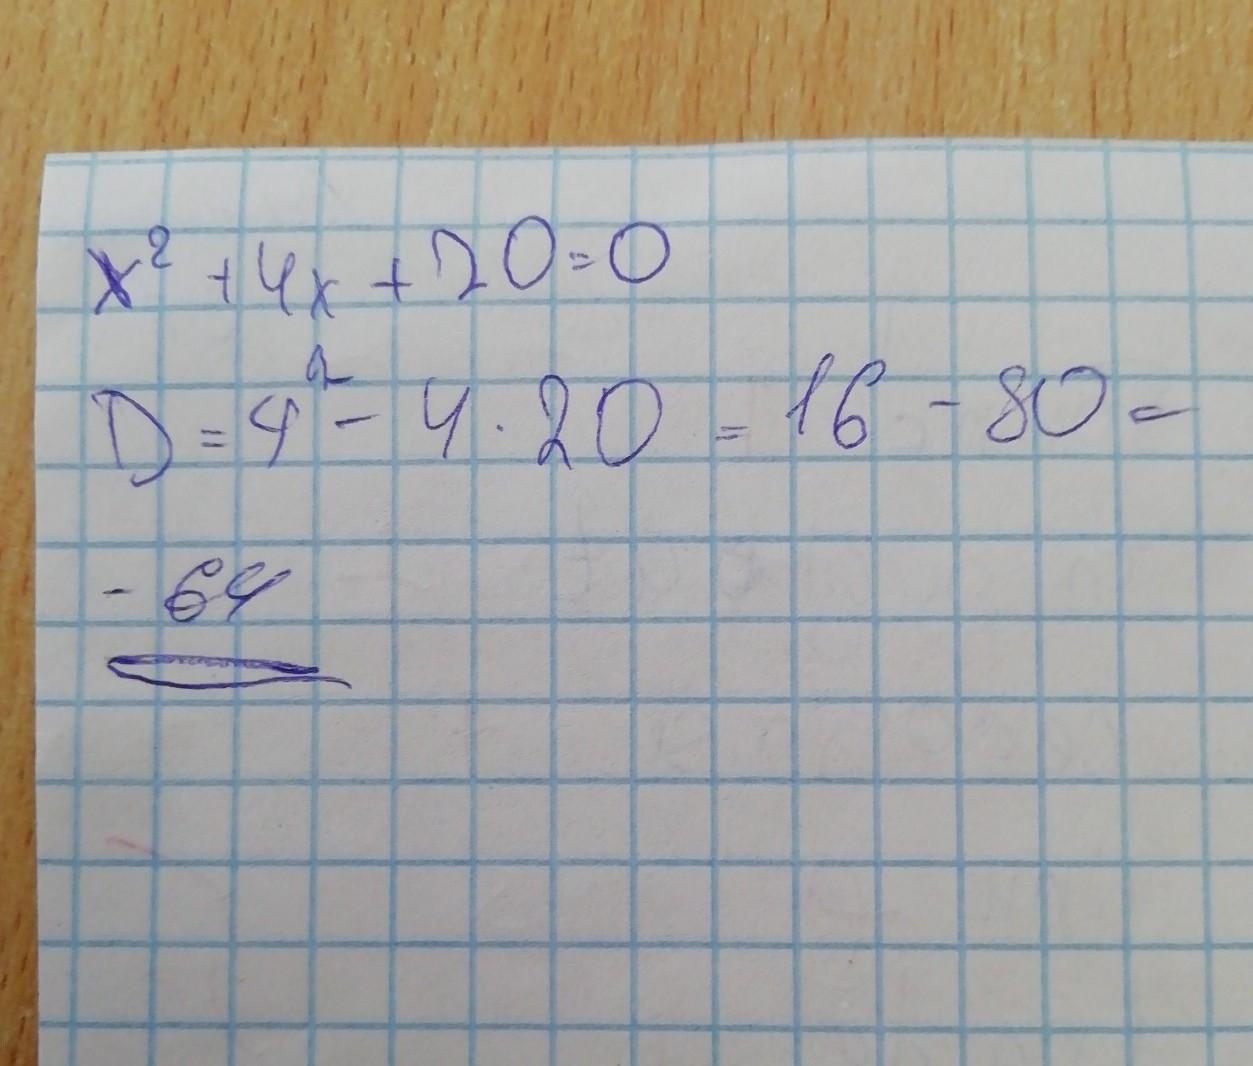 x² + 4x + 20 = 0
D = 4² - 4 · 20 = 16 - 80 =
- 64